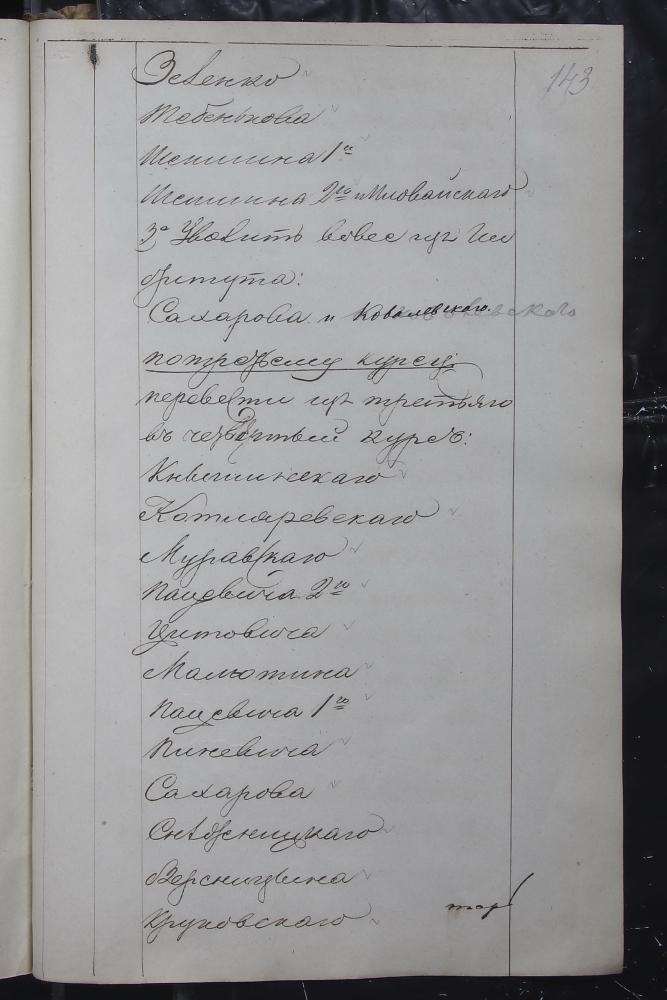 143
Зевенко
Тебенькова
Шепшина 1го
Шепшина 2го и Иловайскаго
3е Уволить вовсе изъ Ин
ститута:
Сахарова и Ковалевскаго.
по третьему курсу:
перевести изъ третьяго
въ четвертый курсъ:
Княгининскаго
Котляревскаго
Муравскаго
Пацевича 2го
Цитовича
Малютина
Пацевича 1го
Пиневича
Сахарова
Снѣжницкаго
Круковскаго